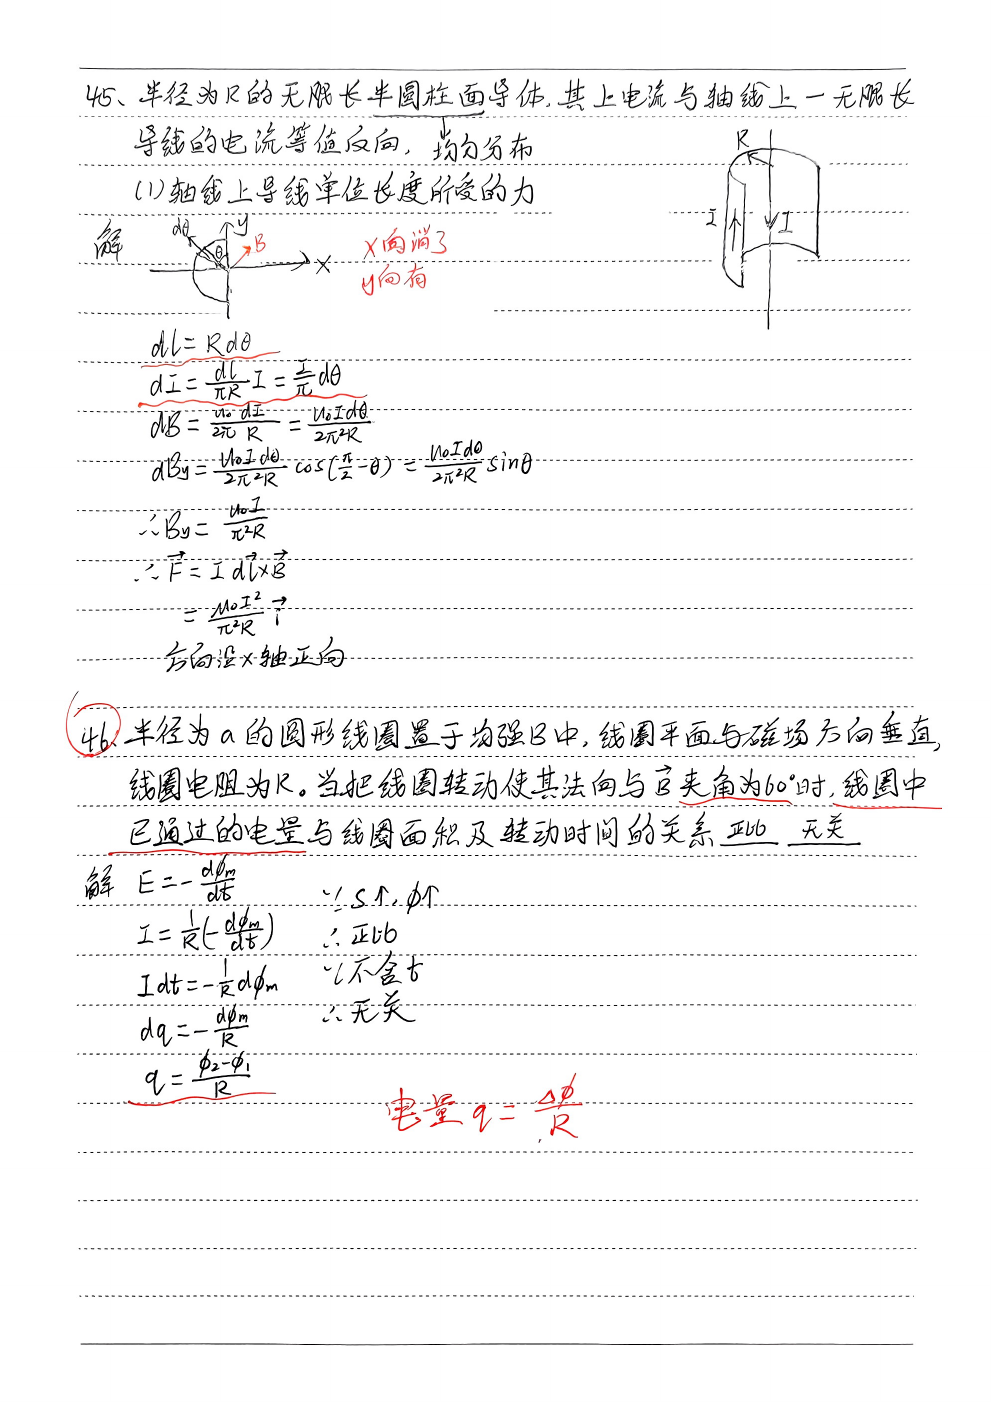 45、半径为R的无限长半圆柱面导体,其上电流与轴线上一无限长
导线的电流等值反向, 均匀分布
(1)轴线上导线单位长度所受的力
R
I
I
解
dθ
θ
y
B
x
x向消了
y向有
dl = Rdθ
dI = dl/πR I = I/π dθ
dB = u₀ dI/2π R = u₀Idθ/2π²R
dBy = u₀Idθ/2π²R cos(π/2-θ) = u₀Idθ/2π²R sinθ
∴By = u₀I/π²R
∴F⃗ = I dl⃗×B⃗
= μ₀I²/π²R i⃗
方向沿x轴正向
46、半径为a的圆形线圈置于均强B中,线圈平面与磁场方向垂直,
线圈电阻为R。当把线圈转动使其法向与B⃗夹角为60°时,线圈中
已通过的电量与线圈面积及转动时间的关系 正比 无关
解 E = -dϕm/dt
I = 1/R(-dϕm/dt)
Idt = -1/R dϕm
dq = -dϕm/R
q = ϕ₂-ϕ₁/R
∵S↑,ϕ↑
∴正比
∵不含t
∴无关
电量q = Δϕ/R